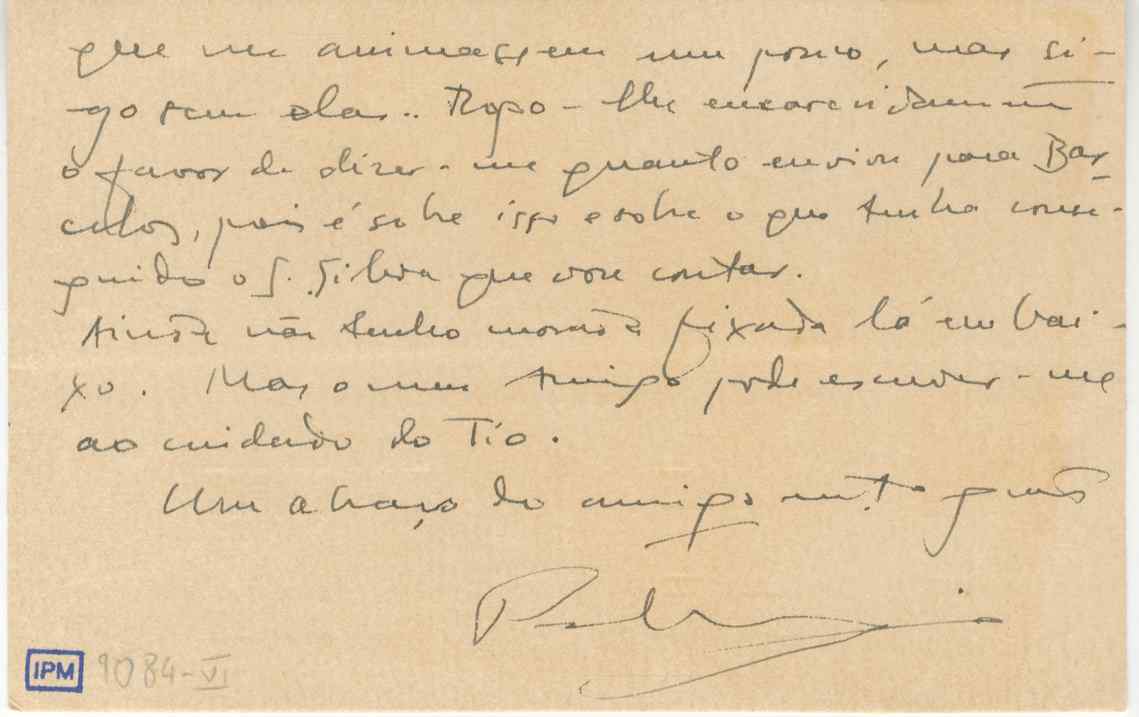 que me animassem um pouco, mas si-
go sem elas.. Rogo-lhe encarecidamente
o favor de dizer-me quanto enviou para Bar
celos, pois é sobre isso e sobre o que tenha conse-
guido o S. Silva que vou contar.
Ainda não tenho morada fixada lá em bai-
xo. Mas o meu Amigo pode escrever-me
ao cuidado do Tio.
Um abraço do amigo mt.º grato
IPM 9084-VI